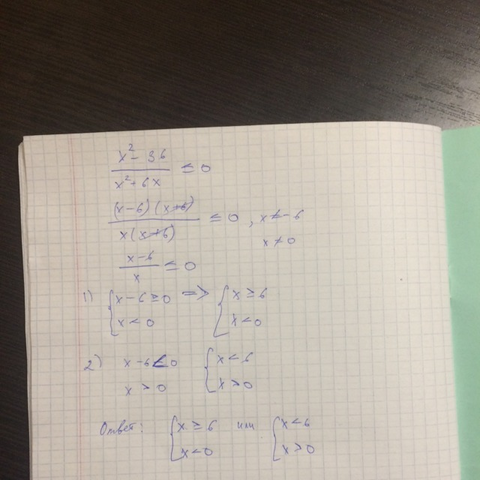 x² - 36 / x² + 6x ≤ 0
(x-6)(x+6) / x(x+6) ≤ 0, x ≠ -6
x ≠ 0
x-6 / x ≤ 0
1) { x-6 ≥ 0 => { x ≥ 6
x < 0 x < 0
2) x-6 < 0 { x < 6
x > 0 x > 0
Ответ: { x ≥ 6 или { x < 6
x < 0 x > 0